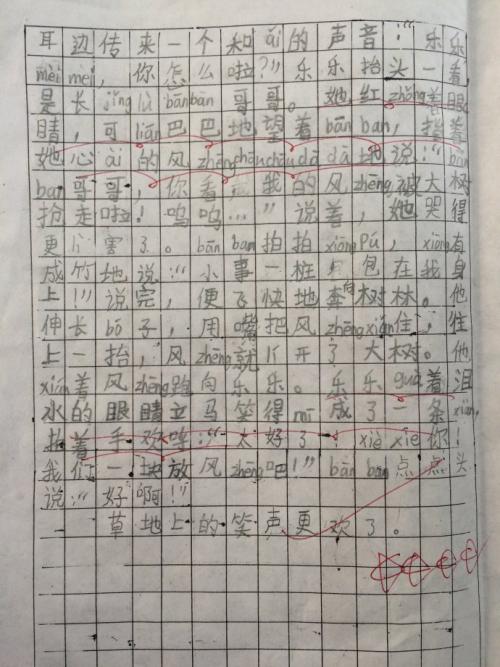 耳边传来一个和ǎi的声音：“乐乐
mèimei，你怎么啦？”乐乐抬头一看，
是长jǐnglù bānbān哥哥。她红zhǒng着眼
睛，可lián巴巴地望着bānbān，指着
她心ài的风zhēng chōuchōudādā地说：“bān
ban哥哥，你看，我的风zhēng被大树
抢走啦！呜呜…”说着，她哭得
更lì害了。bānban拍拍xiōngpú，xiōng有
成竹地说：“小事一桩，包在我身
上！”说完，便飞快地奔向树林。他
伸长bó子，用嘴把风zhēngxián住，往
上一抬，风zhēng就lí开了大树。他
xián着风zhēng跑向乐乐。乐乐guà着泪
水的眼睛立马笑得mī成了一条xiàn，
拍着手欢呼：“太好了！xièxie你！
我们一块放风zhēng吧！”bānban点点头
说：“好啊！”
草地上的笑声更欢了。